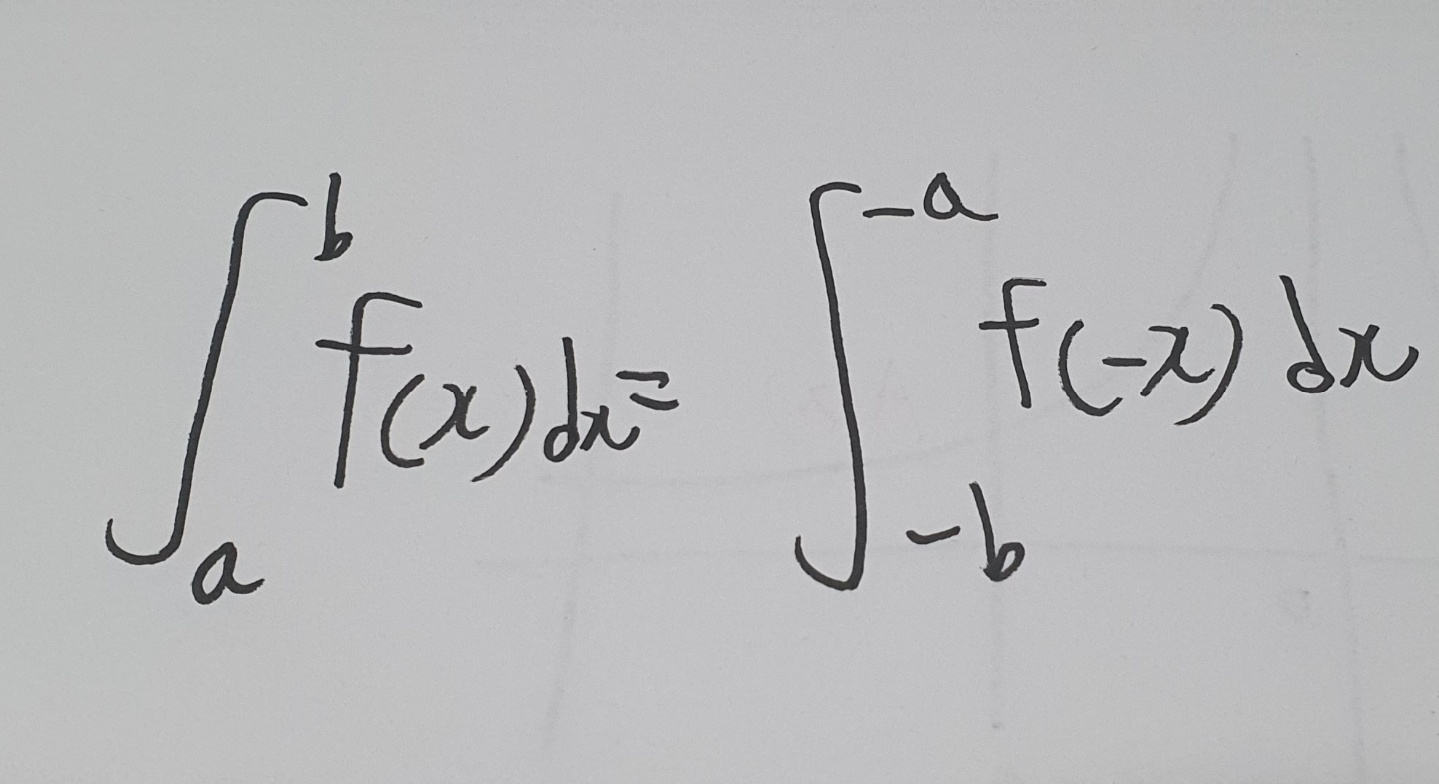 ∫_a^b f(x)dx = ∫_{-b}^{-a} f(-x) dx